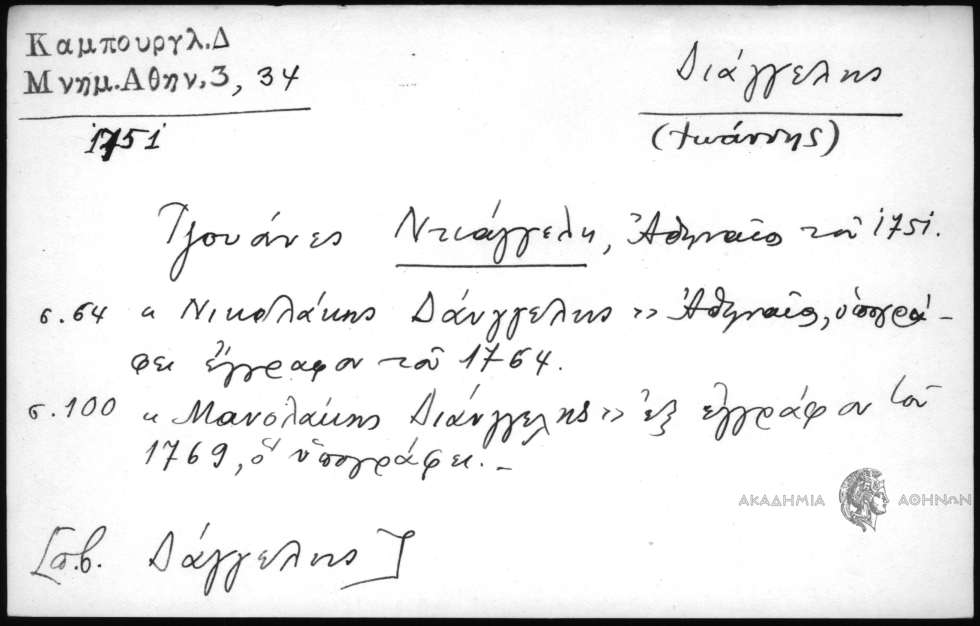 Καμπουργλ.Δ
Μνημ.Αθην.3, 34
1751
Διάγγελης
(Ιωάννης)
Τζουάνες Ντιάγγελη, Ἀθηναῖος τοῦ 1751.
σ. 64 « Νικολάκης Δάνγγελης » Ἀθηναῖος, ὑπογρά-
φει ἔγγραφον τοῦ 1764.
σ. 100 « Μανολάκης Διάνγγελης » ἐξ ἐγγράφου τοῦ
1769, ὃ ὑπογράφει. –
[πβ. Δάγγελης]
ΑΚΑΔΗΜΙΑ ΑΘΗΝΩΝ